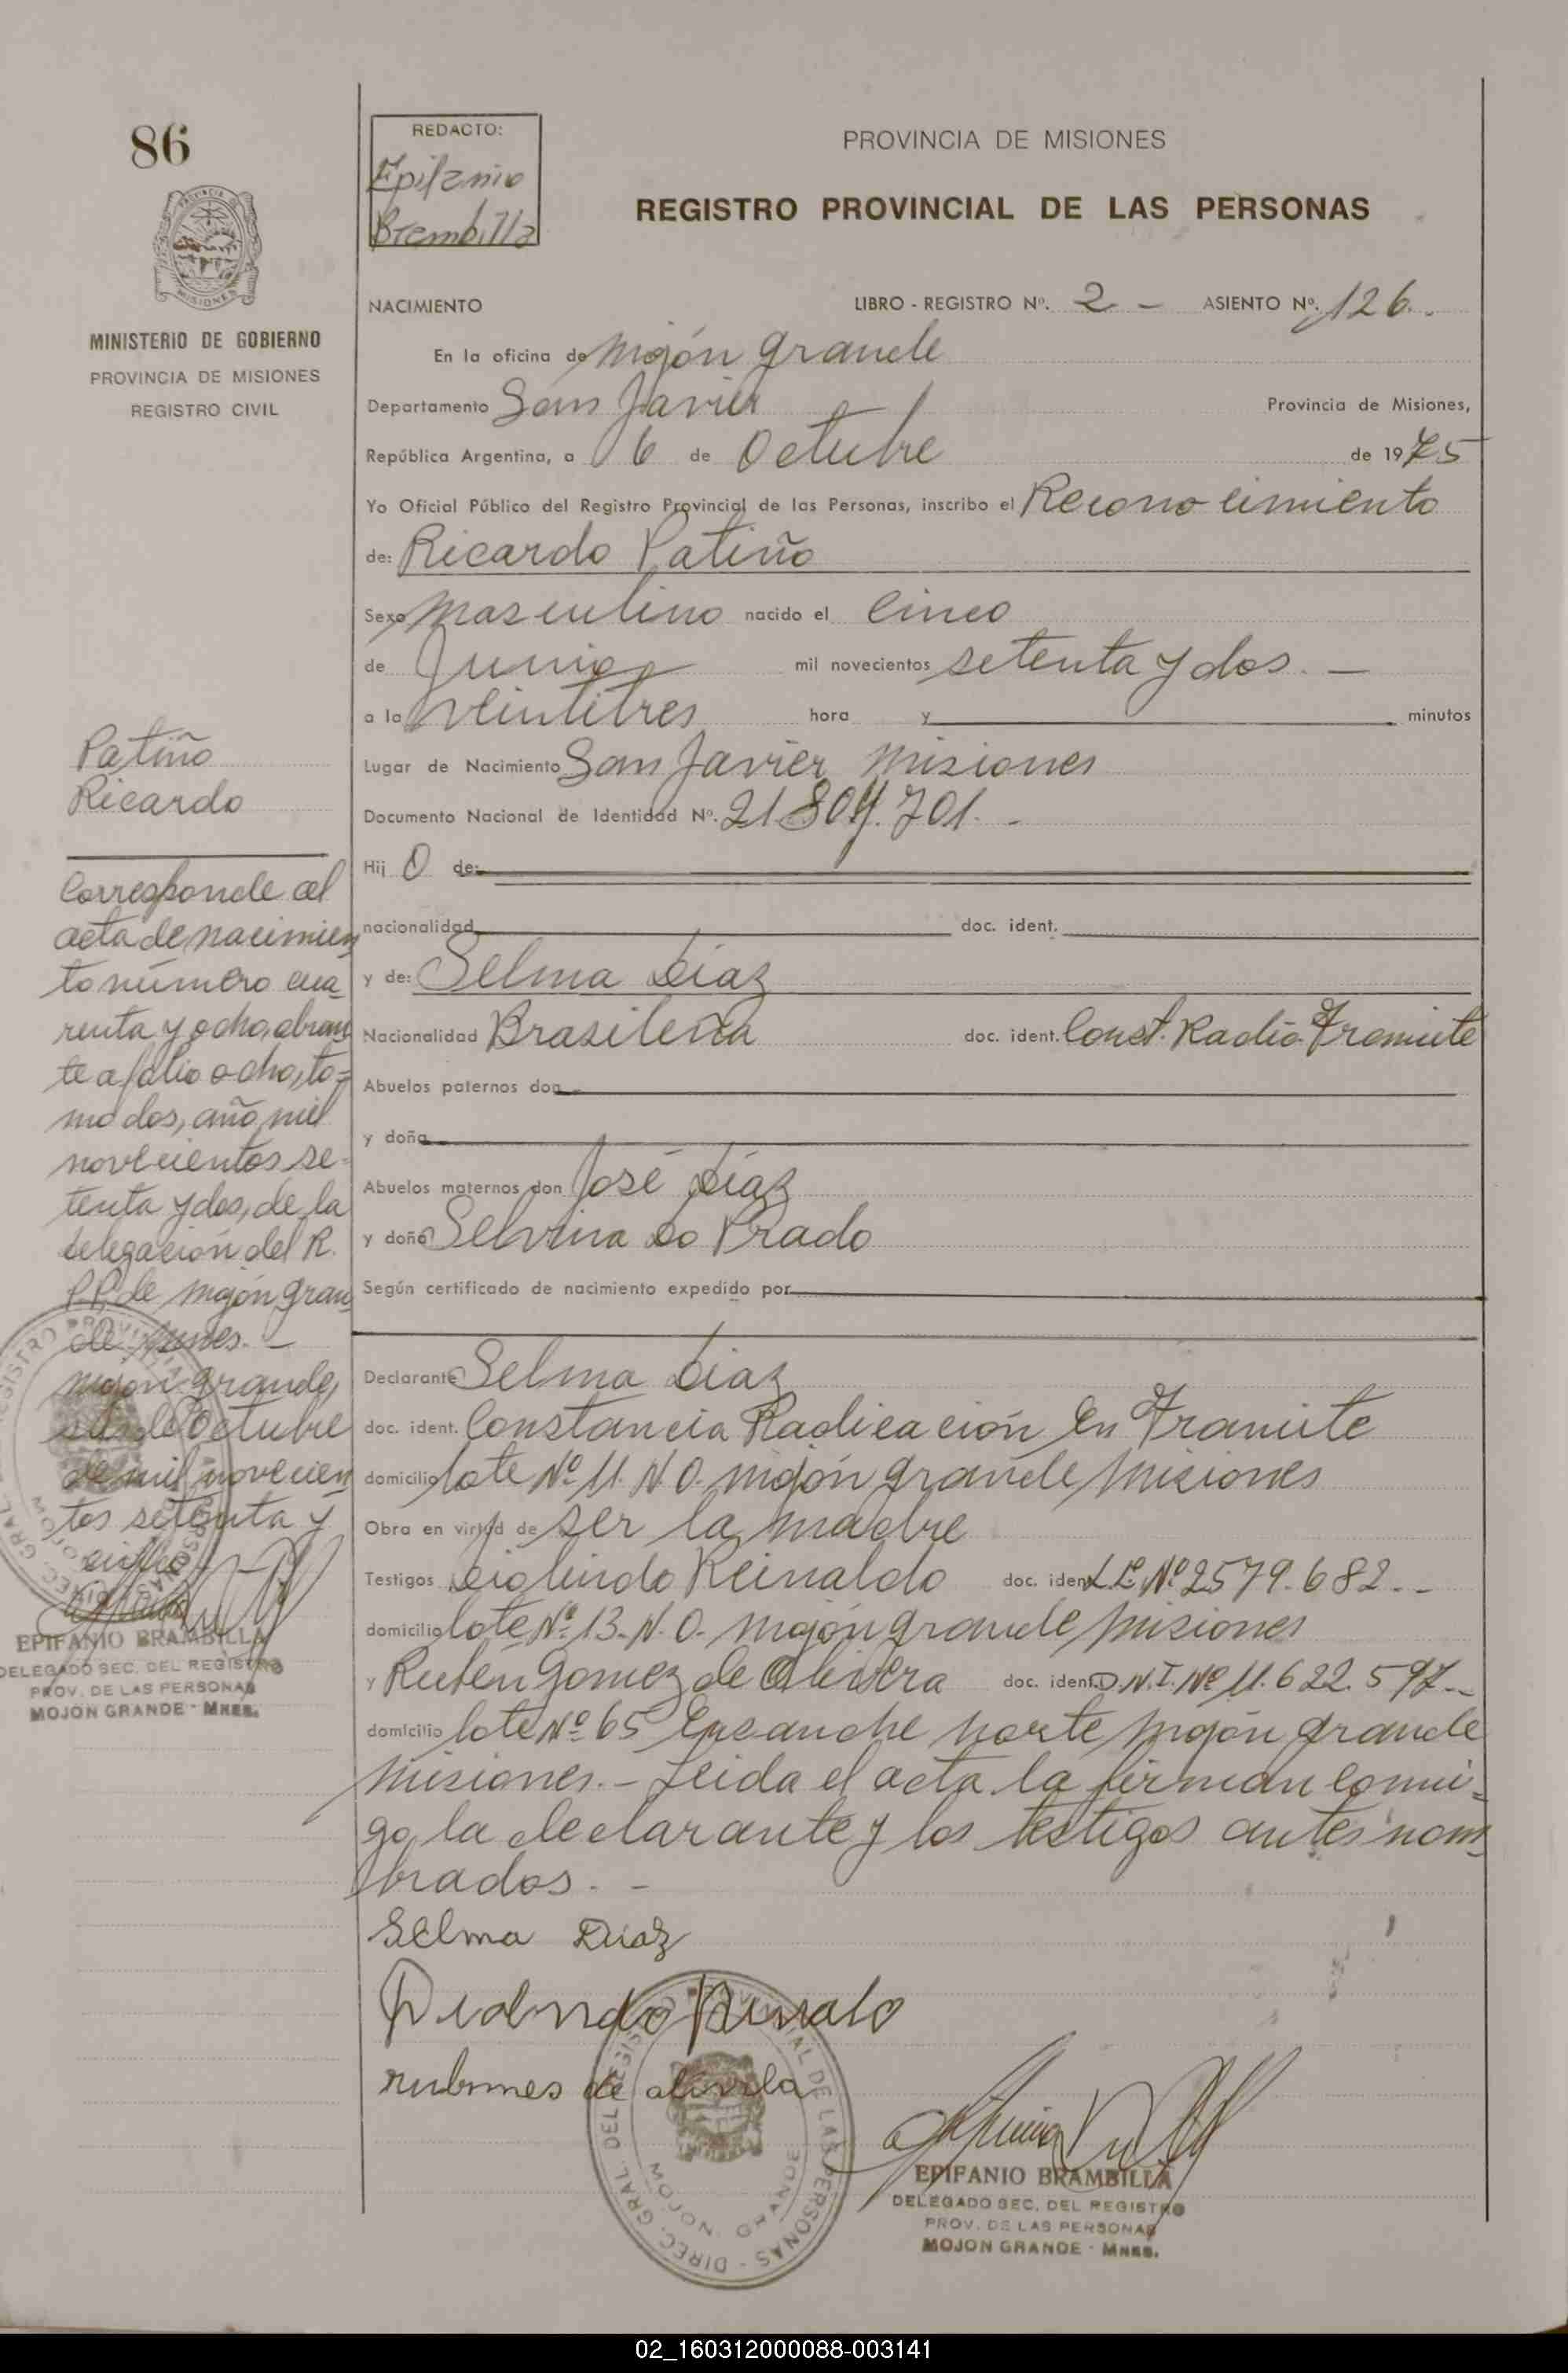 86
REDACTO:
Epifanio
Brambilla
PROVINCIA DE MISIONES
REGISTRO PROVINCIAL DE LAS PERSONAS
MINISTERIO DE GOBIERNO
PROVINCIA DE MISIONES
REGISTRO CIVIL
NACIMIENTO LIBRO - REGISTRO Nº. 2 - ASIENTO Nº. 126.
En la oficina de Mojón grande
Departamento San Javier Provincia de Misiones,
República Argentina, a 6 de Octubre de 1975
Yo Oficial Público del Registro Provincial de las Personas, inscribo el Recono cimiento
de: Ricardo Patiño
Sexo Masculino nacido el Cinco
de Junio mil novecientos setenta y dos. -
a la veintitres hora y minutos
Lugar de Nacimiento San Javier Misiones
Documento Nacional de Identidad Nº. 21.804.701. -
Hij O de:
nacionalidad doc. ident.
y de: Selma Díaz
Nacionalidad Brasileña doc. ident. Const. Radic. Tramite
Abuelos paternos don
y doña
Abuelos maternos don José Díaz
y doña Selvina Do Prado
Según certificado de nacimiento expedido por
Declarante Selma Díaz
doc. ident. Constancia Radicación En Tramite
domicilio lote Nº 11. N.O. Mojón grande Misiones
Obra en virtud de ser la madre
Testigos Diolindo Reinaldo doc. ident. L.E. Nº 2579.682.-
domicilio lote Nº 13. N.O. Mojón grande Misiones
y Rubén Gomez de Olivera doc. ident. D.N.I. Nº 11.622.597.-
domicilio lote Nº 65 Ensanche norte Mojón grande
Misiones. - Leida el acta la firman conmi-
go, la declarante y los testigos antes nom
brados. -
Selma Diaz
EPIFANIO BRAMBILLA
DELEGADO SEC. DEL REGISTRO
PROV. DE LAS PERSONAS
MOJON GRANDE - MNES.
DIREC. GRAL. DEL REGISTRO PROVINCIAL DE LAS PERSONAS
MOJON GRANDE
Patiño
Ricardo
Corresponde al
acta de nacimien
to número cua
renta y ocho, obran
te a folio ocho, to-
mo dos, año mil
novecientos se-
tenta y dos, de la
delegación del R.
P.P. de Mojón gran
de Mnes. -
Mojón grande,
seis de Octubre
de mil novecien
tos setenta y
cinco. -
EPIFANIO BRAMBILLA
DELEGADO SEC. DEL REGISTRO
PROV. DE LAS PERSONAS
MOJON GRANDE - MNES.
02_160312000088-003141